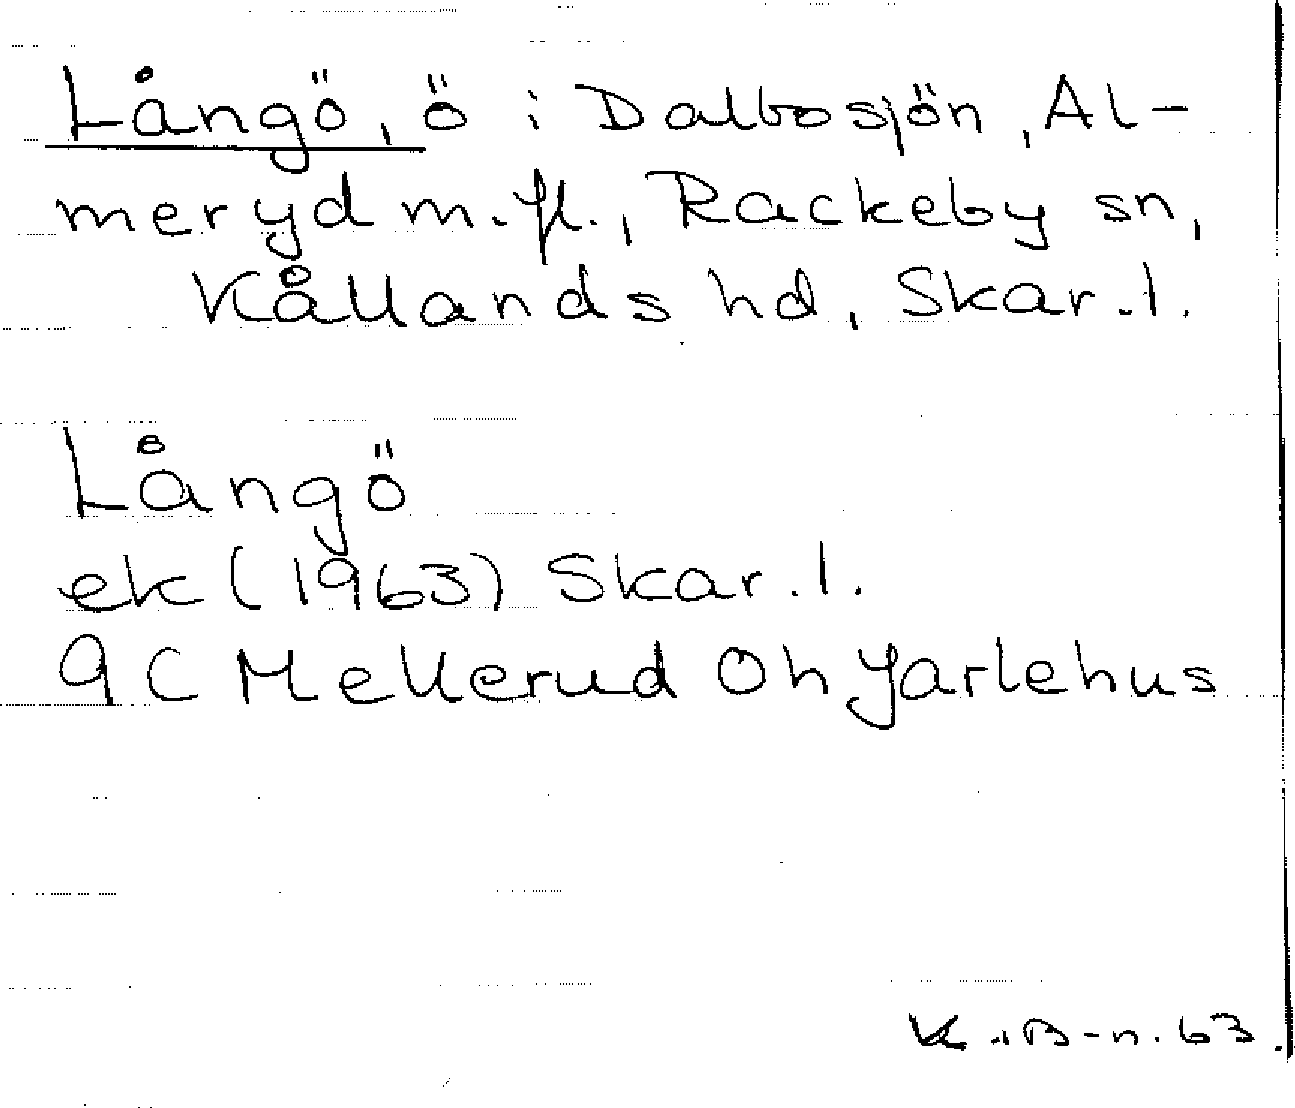 Långö, ö i Dalbosjön, Al-
meryd m.fl., Rackeby sn,
Kållands hd, Skar.l.
Långö
ek (1963) Skar.l.
9C Mellerud Öh Jarlehus
K.B-n. 63.